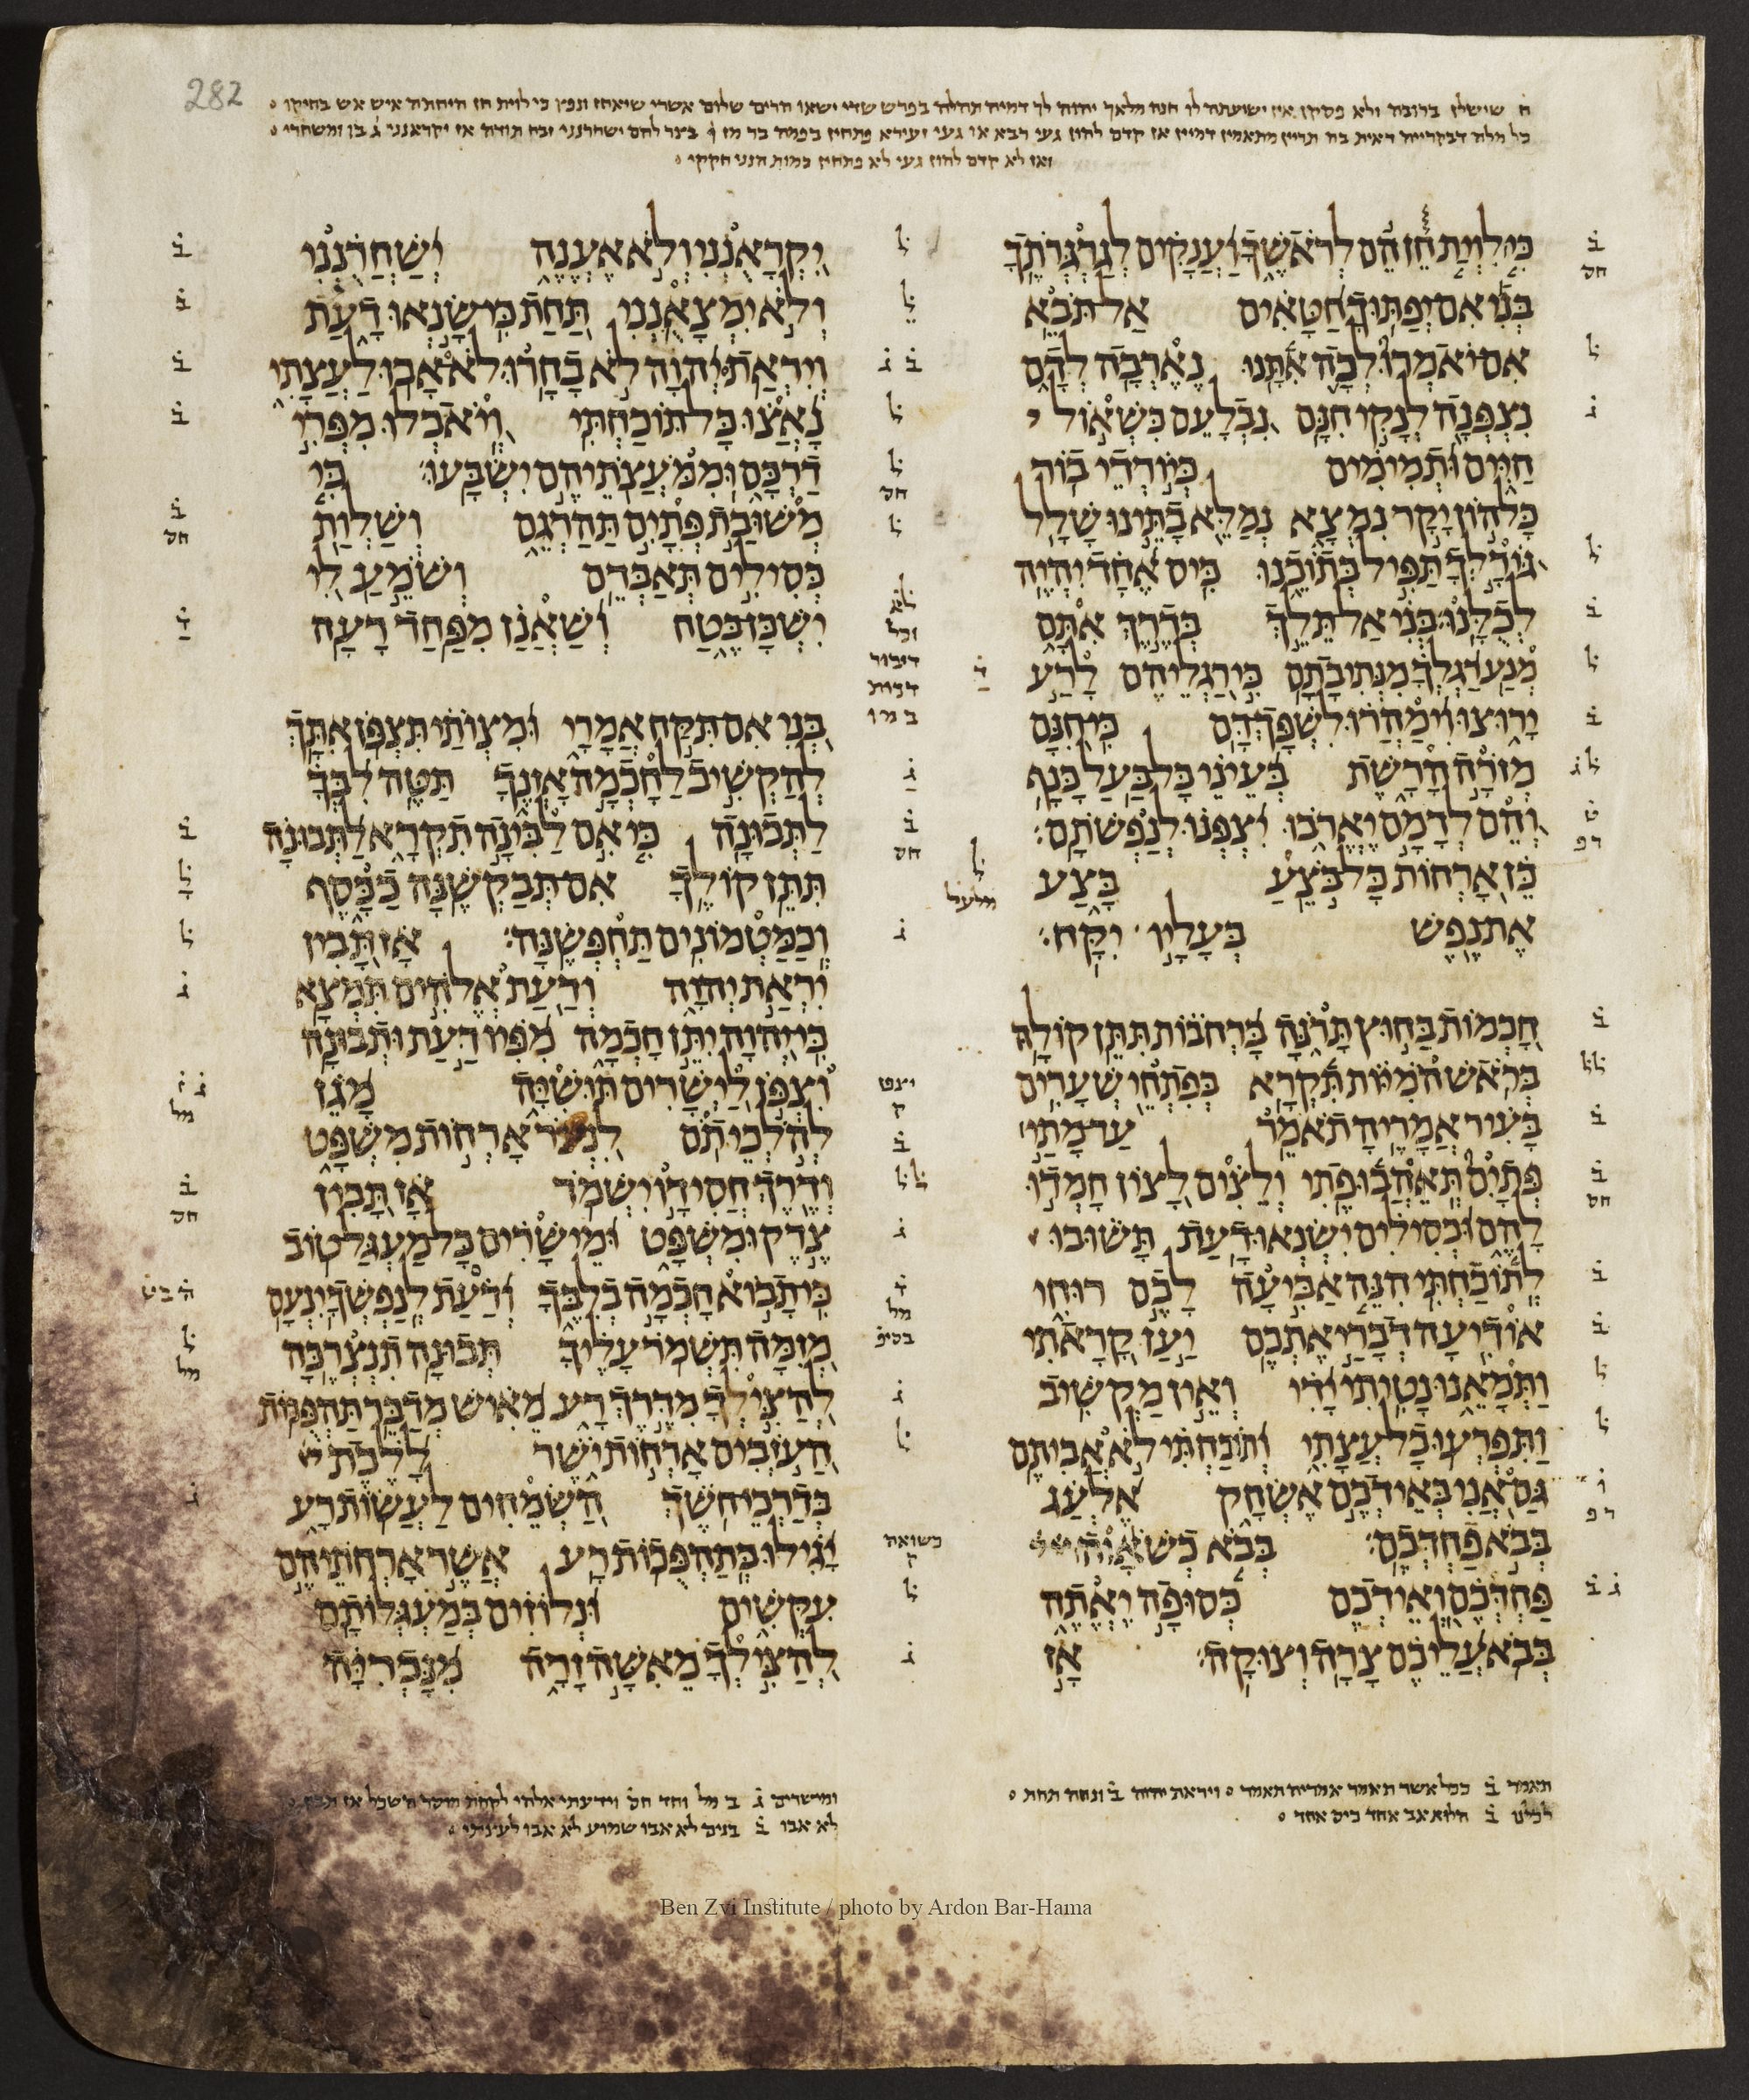 282
ח שישלן ברובה ולא פסיקן אין ישועתה לו חנה מלאך יהוה לך דמיה תהלה בפרש שדי ישאו הרים שלום אשרי שיאחז ונפץ כי לוית חן היחתה איש אש בחיקו
כל מלה דבקרייה דאית בה תריין מתאמין דמיין אן קדם להון געי רבא או געי זעירא פתחין בפמה בר מן לחם ישחרנני זבח תודה אז יקראנני ומשחרי
ואן לא קדם להון געי לא פתחין כמות הנני חקקי
כי לוית חן הם לראשך וענקים לגרגרתך
בני אם יפתוך חטאים אל תבא
אם יאמרו לכה אתנו נארבה לדם
נצפנה לנקי חנם נבלעם כשאול
חיים ותמימים כיורדי בור
כל הון יקר נמצא נמלא בתינו שלל
גורלך תפיל בתוכנו כיס אחד יהיה
לכלנו בני אל תלך בדרך אתם
מנע רגלך מנתיבתם כי רגליהם לרע
ירוצו וימהרו לשפך דם כי חנם
מזרה הרשת בעיני כל בעל כנף
והם לדמם יארבו יצפנו לנפשתם
כן ארחות כל בצע בצע
את נפש בעליו יקח
חכמות בחוץ תרנה ברחבות תתן קולה
בראש המיות תקרא בפתחי שערים
בעיר אמריה תאמר עד מתי
פתים תאהבו פתי ולצים לצון חמדו
להם וכסילים ישנאו דעת תשובו
לתוכחתי הנה אביעה לכם רוחי
אודיעה דברי אתכם יען קראתי
ותמאנו נטיתי ידי ואין מקשיב
ותפרעו כל עצתי ותוכחתי לא אביתם
גם אני באידכם אשחק אלעג
בבא פחדכם בבא כשאוה
פחדכם ואידכם כסופה יאתה
בבא עליכם צרה וצוקה אז
יקראנני ולא אענה ישחרנני
ולא ימצאנני תחת כי שנאו דעת
ויראת יהוה לא בחרו לא אבו לעצתי
נאצו כל תוכחתי ויאכלו מפרי
דרכם וממעצתיהם ישבעו כי
משובת פתים תהרגם ושלות
כסילים תאבדם ושמע לי
ישכן בטח ושאנן מפחד רעה
בני אם תקח אמרי ומצותי תצפן אתך
להקשיב לחכמה אזנך תטה לבך
לתבונה כי אם לבינה תקרא לתבונה
תתן קולך אם תבקשנה ככסף
וכמטמונים תחפשנה אז תבין
יראת יהוה ודעת אלהים תמצא
כי יהוה יתן חכמה מפיו דעת ותבונה
וצפן לישרים תושיה מגן
להלכי תם לנצר ארחות משפט
ודרך חסידו ישמר אז תבין
צדק ומשפט ומישרים כל מעגל טוב
כי תבוא חכמה בלבך ודעת לנפשך ינעם
מזמה תשמר עליך תבונה תנצרכה
להצילך מדרך רע מאיש מדבר תהפכות
העזבים ארחות ישר ללכת
בדרכי חשך השמחים לעשות רע
יגילו בתהפכות רע אשר ארחתיהם
עקשים ונלוזים במעגלותם
להצילך מאשה זרה מנכריה
תאמר ב̇ ככל אשר תאמר אמריה תאמר ויראת יהוה ב̇ ונחה תחת
לכלנו ב̇ הלוא אב אחד כיס אחד
ומישרים ג̇ ב מל וחד חס וידעתי אלהי לקחת מוסר השכל אז תבין
לא אבו ב̇ בנים לא אבו שמוע לא אבו לעצתי
Ben Zvi Institute / photo by Ardon Bar-Hama